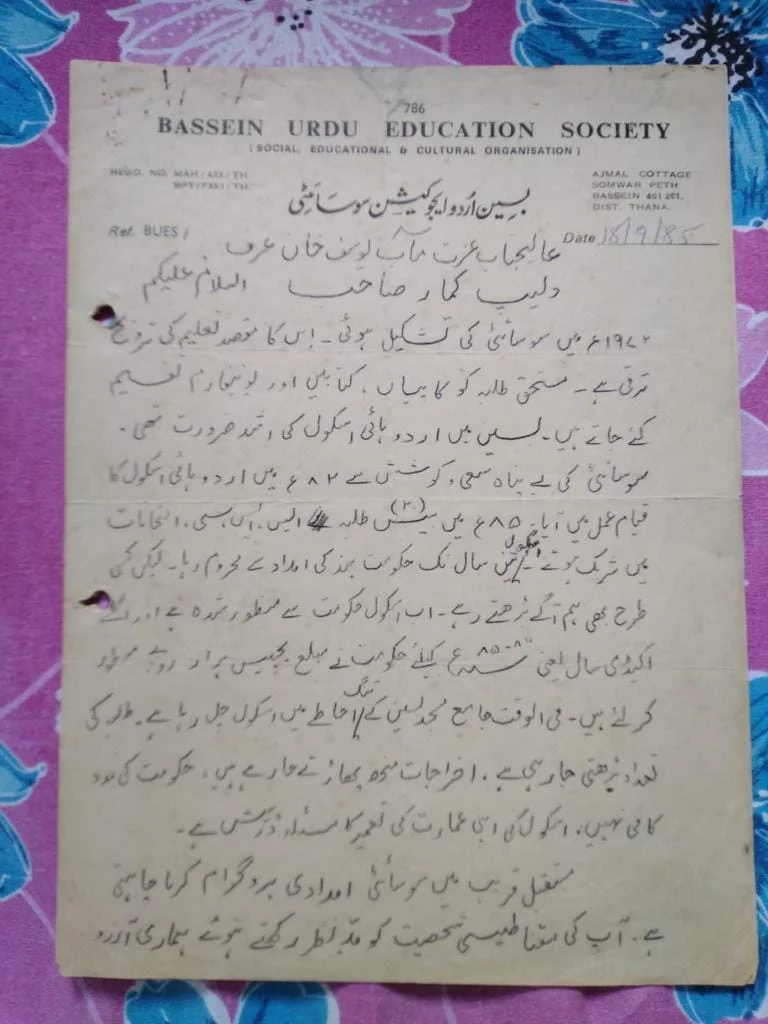 786
BASSEIN URDU EDUCATION SOCIETY
( SOCIAL, EDUCATIONAL & CULTURAL ORGANISATION )
REGD. NO. MAH / 433 / TH.
AJMAL COTTAGE
SOMWAR PETH
BASSEIN 401 201.
DIST. THANA.
بسین اُردو ایجوکیشن سوسائٹی
Ref. BUES /
Date 18/9/85
عالیجناب عزت مآب یوسف خاں عرف
دلیپ کمار صاحب السلام علیکم
۱۹۷۲ع میں سوسائٹی کی تشکیل ہوئی۔ اس کا مقصد تعلیم کی ترویج
ترقی ہے۔ مستحق طلبہ کو کاپیاں، کتابیں اور یونیفارم تقسیم
کئے جاتے ہیں۔ بسین میں اردو ہائی اسکول کی اشد ضرورت تھی۔
سوسائٹی کی بے پناہ سعی و کوشش سے ۸۲ع میں اردو ہائی اسکول کا
قیام عمل میں آیا۔ ۸۵ع میں بیس (۲۰) طلبہ ایس. ایس. سی. امتحانات
میں شریک ہوئے۔ اسکول تین سال تک حکومت ہند کی امداد سے محروم رہا۔ لیکن کسی
طرح بھی ہم آگے بڑھتے رہے۔ اب اسکول حکومت سے منظور شدہ ہے اور
سال یعنی کیلئے حکومت نے مبلغ پچیس ہزار روپے
کر لئے ہیں۔ فی الوقت جامع مسجد بسین کے تنگ احاطے میں اسکول چل رہا ہے۔ طلبہ کی
تعداد بڑھتی جا رہی ہے، اخراجات منھ پھاڑتے جا رہے ہیں، حکومت کی مدد
کافی نہیں، اسکول کی اپنی عمارت کی تعمیر کا مسئلہ درپیش ہے۔
مستقبل قریب میں سوسائٹی امدادی پروگرام کرنا چاہتی
ہے۔ آپ کی مقناطیسی شخصیت کو مدِ نظر رکھتے ہوئے ہماری آرزو